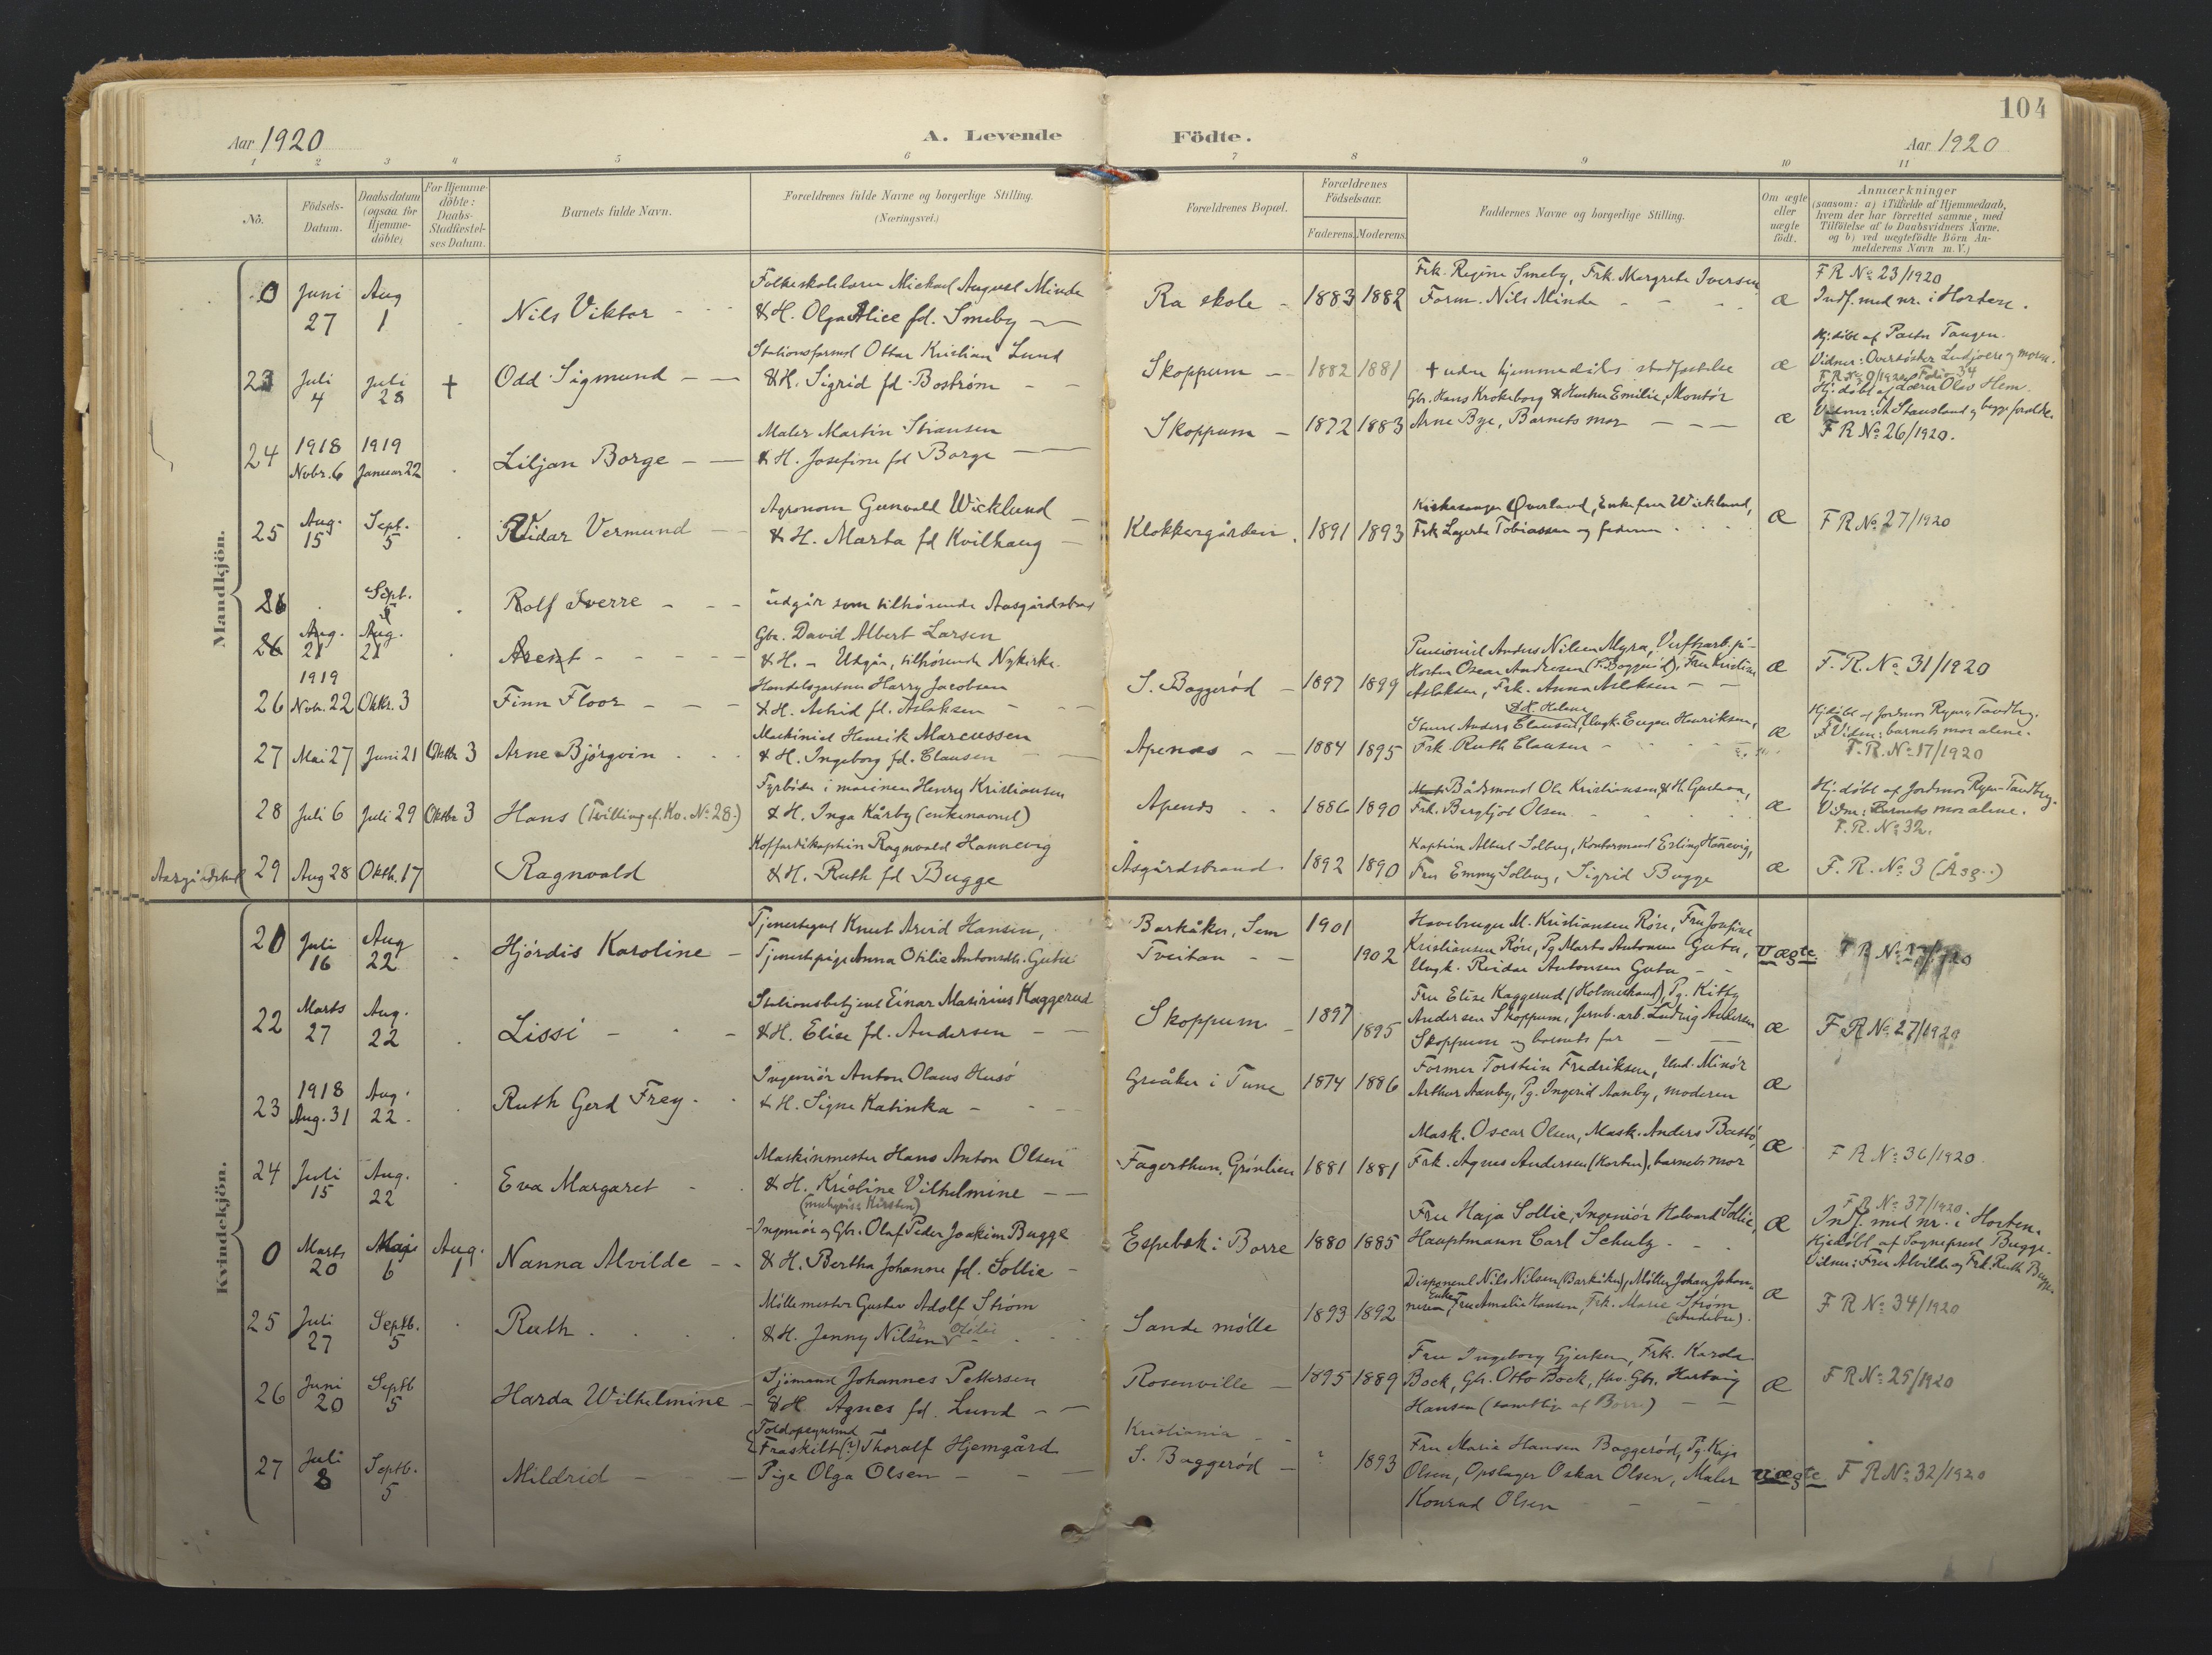 104
Aar 1920
A. Levende Födte.
Aar 1920
1 2 3 4 5 6 7 8 9 10 11
No.
Födsels-Datum.
Daabsdatum (ogsaa for Hjemme-döbte)
For Hjemme-döbte: Daabs-Stadfæstel-ses Datum.
Barnets fulde Navn.
Forældrenes fulde Navne og borgerlige Stilling.
(Næringsvei.)
Forældrenes Bopæl.
Forældrenes Födselsaar.
Faderens. Moderens.
Faddernes Navne og borgerlige Stilling.
Om ægte eller uægte födt.
Anmærkninger
(saasom: a) i Tilfælde af Hjemmedaab,
hvem der har forrettet samme, med
Tilföielse af to Daabsvidners Navne,
og b) ved uægtefödte Börn An-
melderens Navn m. V.)
Mandkjön.
0 Juni 27 Aug 1 Nils Viktor
Folkeskolelærer Mickael August Minde
& H. Olga Alice fd. Smeby
Ra skole 1883 1882
Frk. Regine Smeby, Frk. Margrete Iversen
Form. Nils Minde
æ
F R No 23/1920
Indf. med nr. i Horten.
23 Juli 4 Juli 28 + Odd Sigmund
Stationsformd Ottar Kristian Lund
& H. Sigrid fd. Boström
Skoppum 1882 1881
+ uden hjemmedåbs stadfæstelse
æ
Hj. döbt af Pastor Tangen.
24 1918 Nobr. 6 1919 Januar 22 Liljan Borge
Maler Martin Stiansen
& H. Josefine fd Borge
Skoppum 1872 1883
Gbr. Hans Krokeborg & Hustru Emilie, Montör
Arne Bye, Barnets mor
æ
Hj. döbt af Lærer Olav Hem.
Vidner: A Stausland og begge forældre.
F R No 26/1920.
25 Aug. 15 Sept. 5 Vidar Vermund
Agronom Gunvald Wicklund
& H. Marta fd Kvilhaug
Klokkergården 1891 1893
Kirkesanger Överland, Enkefrue Wicklund,
Frk Lagerta Tobiassen og faderen
æ
F R No 27/1920
26 Sept. 5 Rolf Sverre
udgår som tilhörende Aasgårdstrand
26 Aug. 21 Aug. 21 Arent
Gbr. David Albert Larsen
& H. - Utgår, tilhörende Nykirke.
26 1919 Nvbr. 22 Oktbr. 3 Finn Floor
Handelsgartner Harry Jacobsen
& H. Astrid fd. Aslaksen
S. Baggeröd 1897 1899
Pensionist Anders Nilsen Myra, Verftsarb. på
Horten Oscar Andresen (S. Baggeröd), Fru Kristine
Aslaksen, Frk. Anna Aslaksen
æ
F. R. No 31/1920
27 Mai 27 Juni 21 Oktbr 3 Arne Björgvin
Maskinist Henrik Marcussen
& H. Ingeborg fd. Clausen
Apenæs 1884 1895
& H. Helene
Anders Clausen, Ungk. Eugen Henriksen,
Frk. Ruth Clausen
æ
Hj. döbt af Jordmor Rymer Tandberg.
Vidner: barnets mor alene.
F. R. No 17/1920
28 Juli 6 Juli 29 Oktbr 3 Hans (Tvilling cf. Kv. No 28.)
Fyrböter i marinen Henry Kristiansen
& H. Inga Kårby (enkenavnet)
Apenæs 1886 1890
Bådsmand Ole Kristiansen & H. Gustava,
Frk. Bergljot Olsen
æ
Hj. döbt af Jordmor Rymer-Tandberg.
Vidner: Barnets mor alene.
F. R. No 32.
Aasgårdstrd 29 Aug 28 Oktb. 17 Ragnvald
Koffardikaptein Ragnvald Hannevig
& H. Ruth fd Bugge
Åsgårdstrand 1892 1890
Kaptein Albert Solberg, Kontormand Erling Hannevig,
Fru Emmy Solberg, Sigrid Bugge
æ
F. R. No 3 (Åsg..)
Kvindekjön.
20 Juli 16 Aug 22 Hjördis Karoline
Tjenestegut Knut Arvid Hansen,
Tjenestepige Anna Otilie Antonsdtr. Gutu
Barkåker, Sem 1901
Tveitan 1902
Havebruger M. Kristiansen Röre, Fru Josefine
Kristiansen Röre, Pg Marta Antonsen Gutu,
Ungk. Reidar Antonsen Gutu
Uægte
22 Marts 27 Aug. 22 Lissi
Stationsbetjent Einar Masirius Kaggerud
& H. Elise fd. Andersen
Skoppum 1897 1895
Fru Elise Kaggerud (Holmestrand), Pg. Kitty
Andersen Skoppum, Jernb. arb. Ludvig Andersen
Skoppum og barnets far
æ
F R No 27/1920
23 1918 Aug. 31 Aug. 22. Ruth Gerd Frey
Ingeniör Anton Olaus Husö
& H. Signe Katinka
Greåker i Tune 1874 1886
Former Torstein Fredriksen, Und. Minör
Arthur Aanby, Pg. Ingerid Aanby, moderen
æ
24 Juli 15 Aug. 22 Eva Margaret
Maskinmester Hans Anton Olsen
& H. Kristine Vilhelmine
(muligvis Kirsten)
Fagerthun, Grönlien 1881 1881
Mask. Oscar Olsen, Mask. Anders Bastö,
Frk. Agnes Andersen (Horten), barnets mor
æ
F R No 36/1920.
0 Marts 20 Maj 6 Aug. 1 Nanna Alvilde
Ingeniör og Gbr. Olaf Peder Joakim Bugge
& H. Bertha Johanne fd. Sollie
Espebak i Borre 1880 1885
Fru Haja Sollie, Ingeniör Halvard Sollie,
Hauptmann Carl Schulz
æ
F R No 37/1920
Indf. med nr. i Horten.
Hjdöbt af Sogneprest Bugge.
Vidner: Fru Alvilde og Frk. Ruth Bugge.
25 Juli 27 Septb. 5 Ruth
Möllemester Gustav Adolf Ström
& H. Jenny Otilie Nilsen
Sande mölle 1893 1892
Disponent Nils Nilsen (Barkåker), Möller Johan Johan-
nesen, Enke Fru Amalie Hansen, Frk. Marie Ström
(Andebu).
æ
F R No 34/1920
26 Juni 20 Septb 5 Harda Wilhelmine
Sjömand Johannes Pettersen
& H. Agnes fd. Lund
Rosenville 1895 1889
Fru Ingeborg Gjertsen, Frk. Karda
Bock, Gbr. Otto Bock, fhv. Gbr. Hartvig
Hansen (samtlige af Borre)
æ
F R No 25/1920
27 Juli 8 Septb. 5 Mildrid
Toldopsynsmd
Fraskilt (?) Thoralf Hjemgård
Pige Olga Olsen
Kristiania ?
S. Baggeröd 1893
Fru Maria Hansen Baggeröd, Pg. Kaja
Olsen, Opslager Oskar Olsen, Maler
Konrad Olsen
Uægte
F R No 32/1920